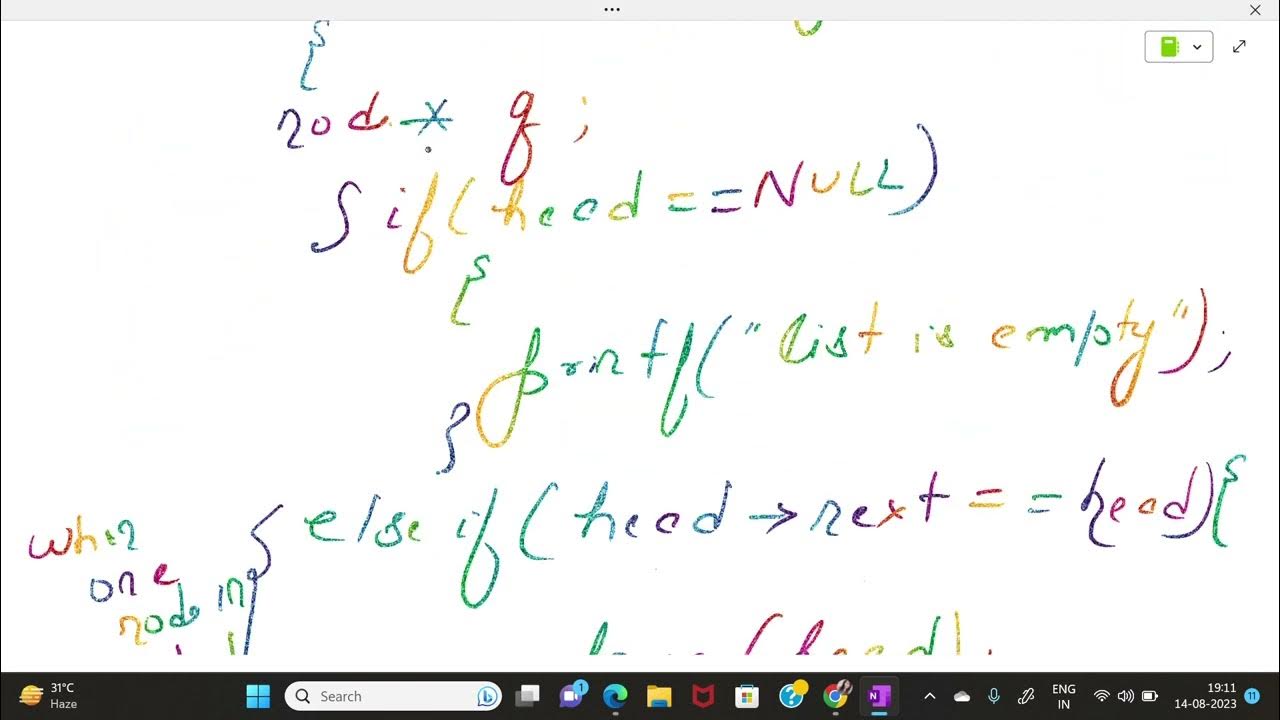 {
node * q ;
if(head == NULL)
{
printf("list is empty");
}
else if(head → next == head){
when
one
node in
31°C
Haze
Search
1
ENG
IN
19:11
14-08-2023
11